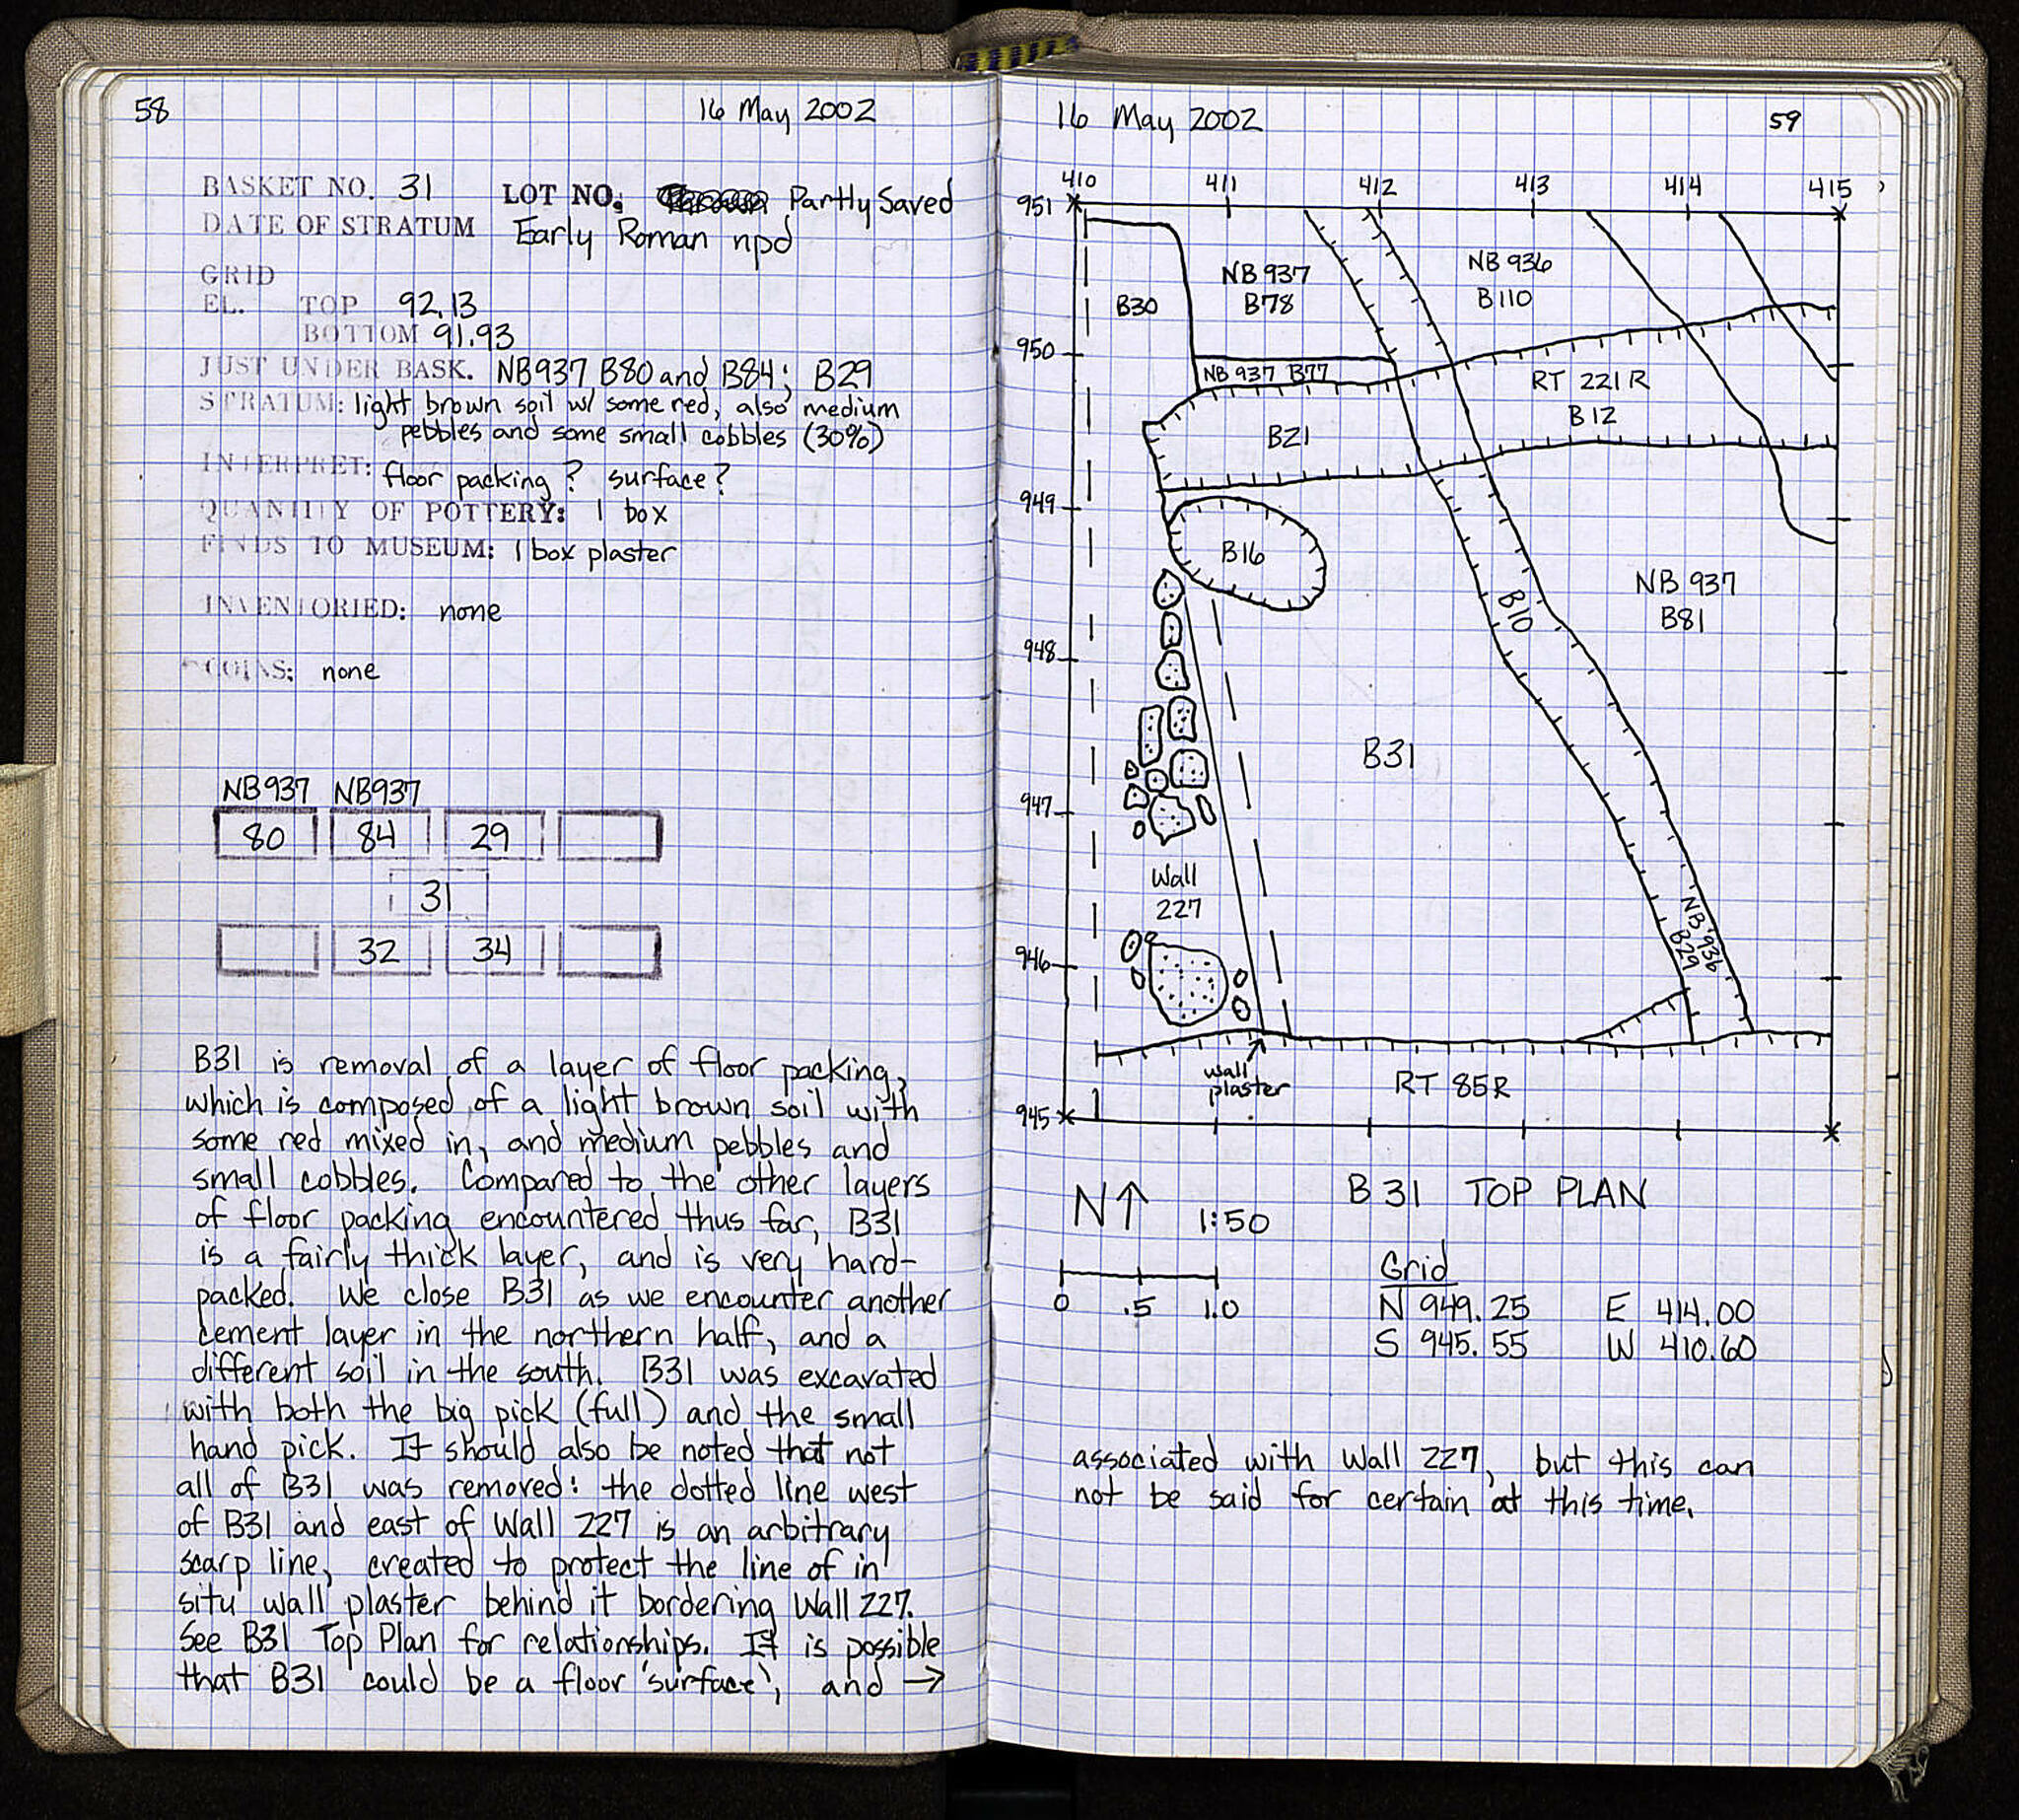 58
16 May 2002
BASKET NO. 31 LOT NO: Partly Saved
DATE OF STRATUM Early Roman npd
GRID
EL. TOP 92.13
BOTTOM 91.93
JUST UNDER BASK. NB937 B80 and B84; B29
STRATUM: light brown soil w/ some red, also medium
pebbles and some small cobbles (30%)
INTERPRET: floor packing? surface?
QUANTITY OF POTTERY: 1 box
FINDS TO MUSEUM: 1 box plaster
INVENTORIED: none
COINS: none
NB937 NB937
80 84 29
31
32 34
B31 is removal of a layer of floor packing,
which is composed of a light brown soil with
some red mixed in, and medium pebbles and
small cobbles. Compared to the other layers
of floor packing encountered thus far, B31
is a fairly thick layer, and is very hard-
packed. We close B31 as we encounter another
cement layer in the northern half, and a
different soil in the south. B31 was excavated
with both the big pick (full) and the small
hand pick. It should also be noted that not
all of B31 was removed: the dotted line west
of B31 and east of Wall 227 is an arbitrary
scarp line, created to protect the line of in
situ wall plaster behind it bordering Wall 227.
See B31 Top Plan for relationships. It is possible
that B31 could be a floor 'surface', and →
16 May 2002
59
410 411 412 413 414 415
951
NB 937
B78
NB 936
B110
B30
950
NB 937 B77
RT 221R
B12
B21
949
B16
NB 937
B81
B10
948
B31
947
Wall
227
NB 936
B29
946
wall
plaster
RT 85R
945
N↑ 1:50
B31 TOP PLAN
0 .5 1.0
Grid
N 949.25 E 414.00
S 945.55 W 410.60
associated with Wall 227, but this can
not be said for certain at this time.